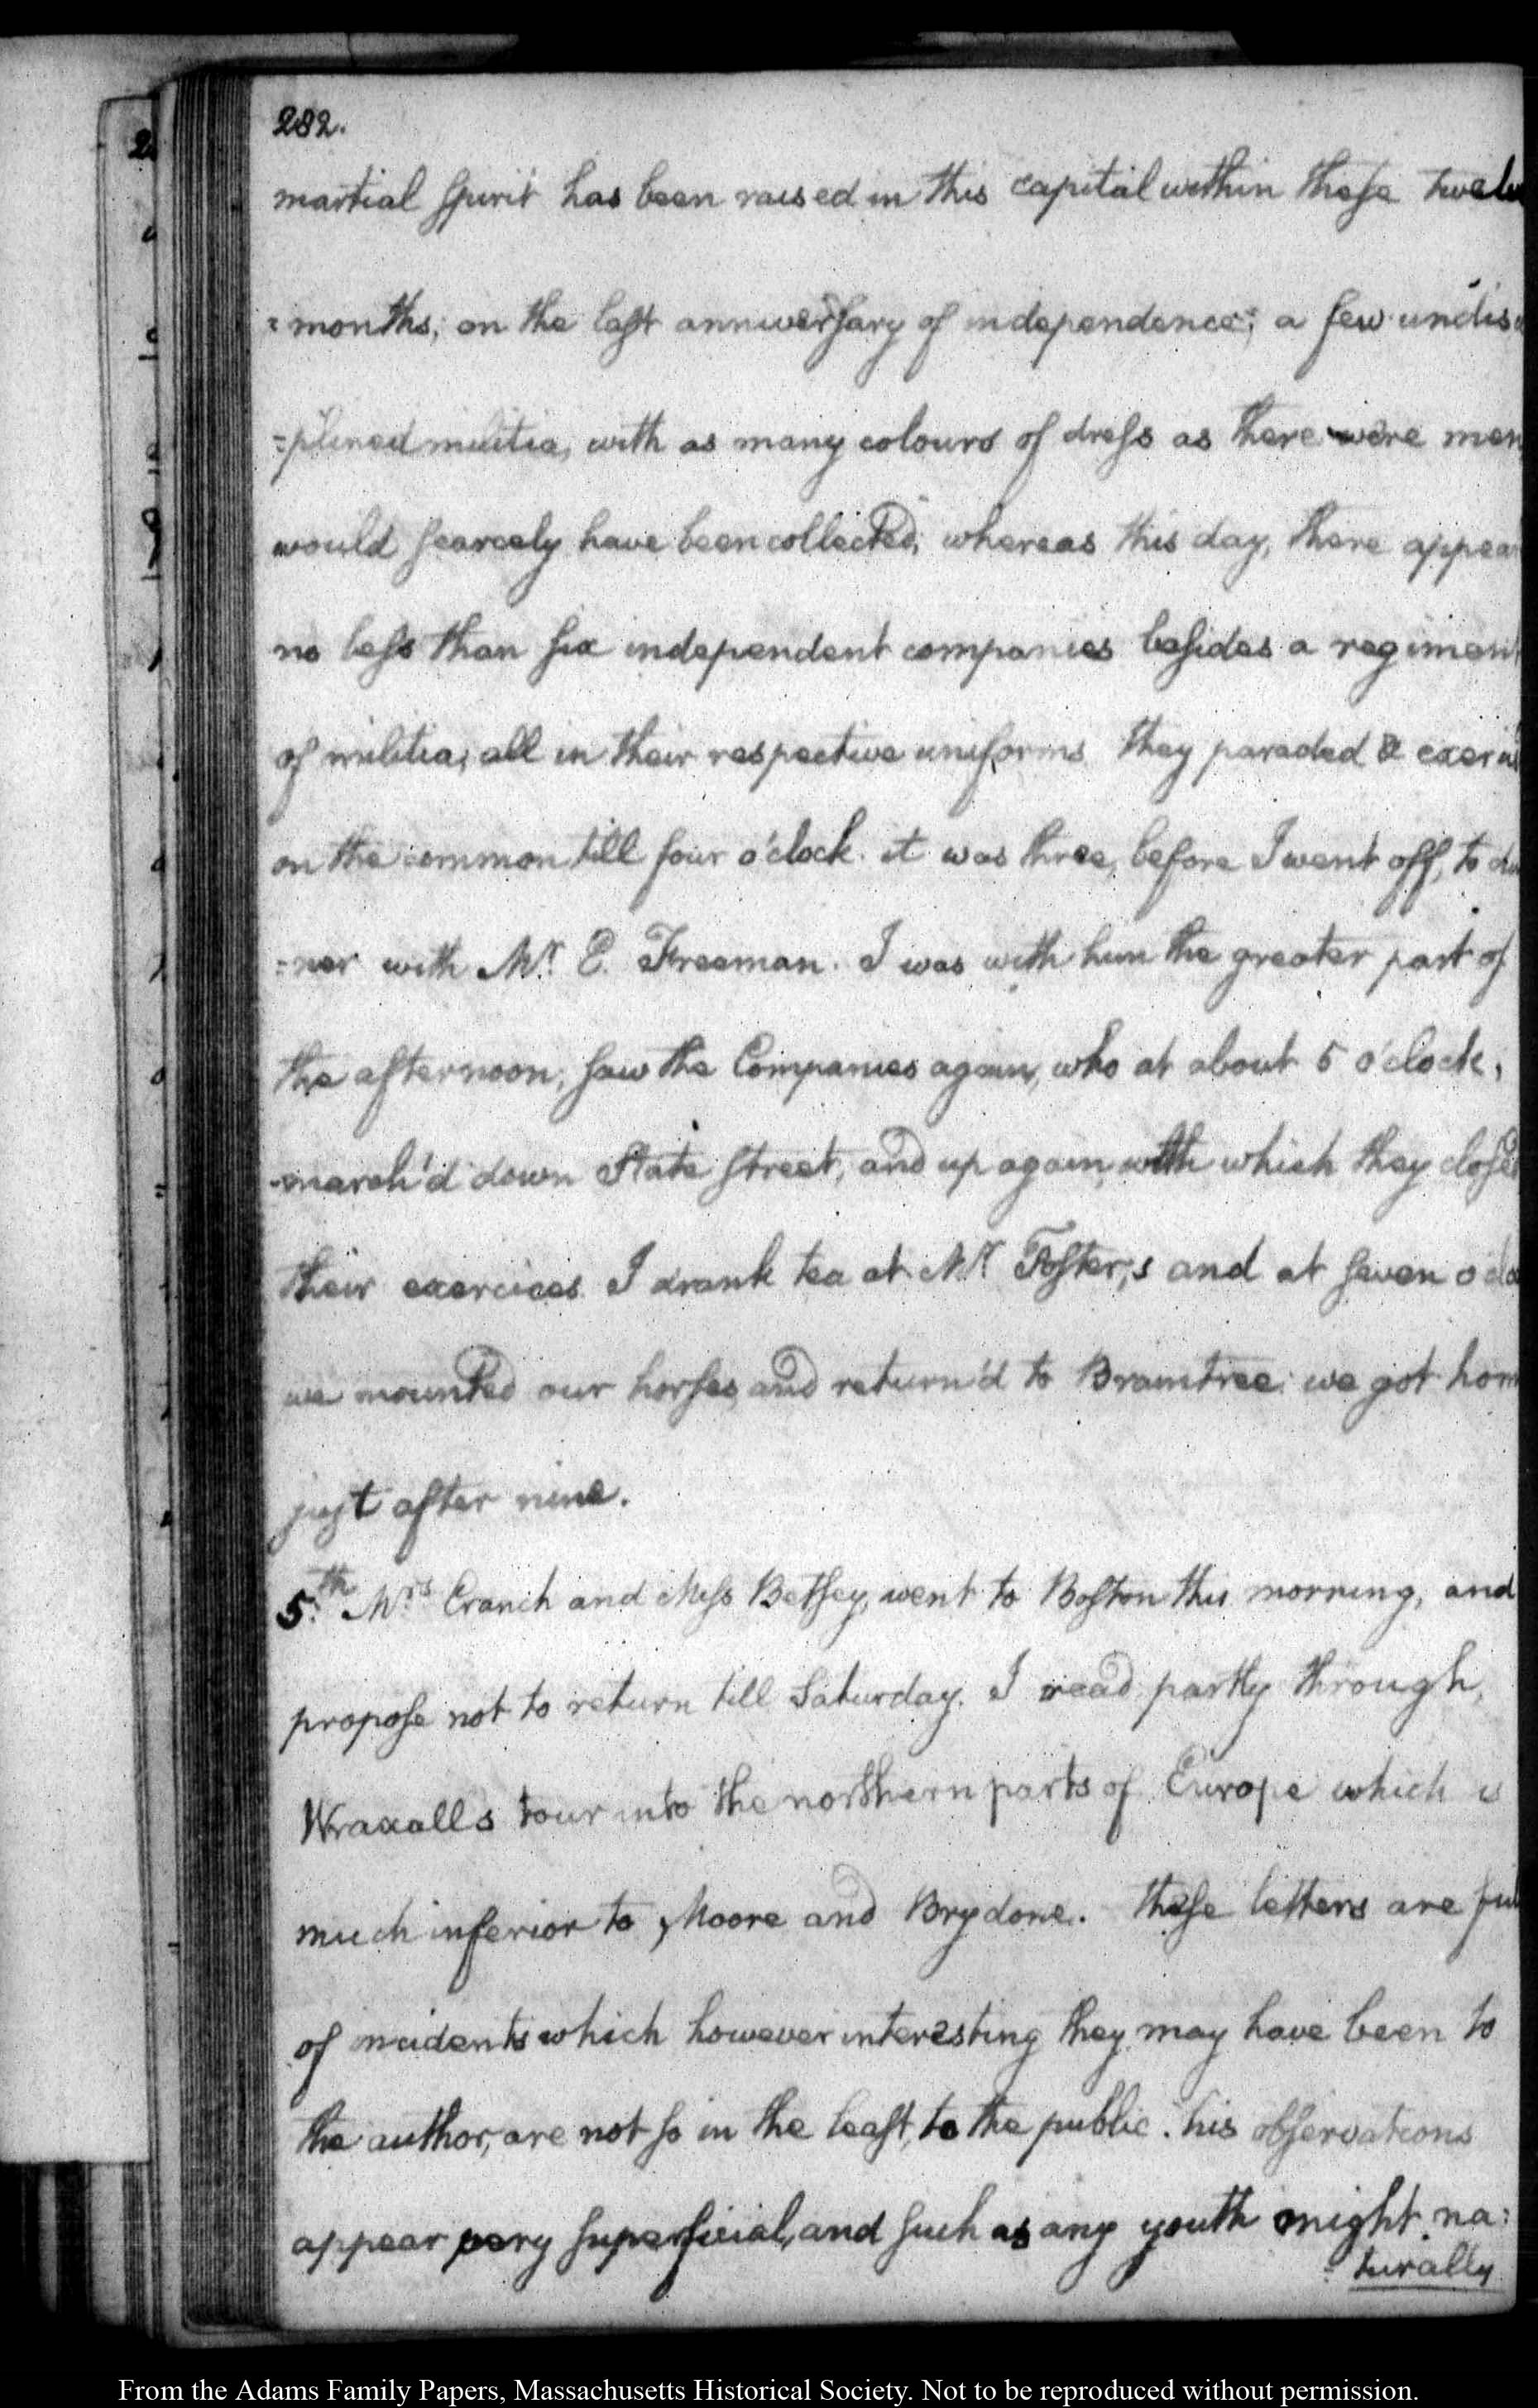 282.
martial spirit has been raised in this capital within these twelv
=months; on the last anniversary of independence; a few undisc
=plined militia, with as many colours of dress as there were men
would scarcely have been collected; whereas this day, there appear
no less than six independent companies besides a regiment
of militia; all in their respective uniforms they paraded & exercis
on the common till four o'clock. it was three, before I went off, to din
=ner with Mr. E. Freeman. I was with him the greater part of
the afternoon; saw the Companies again, who at about 5 o'clock,
march'd down State street, and up again, with which they closed
their exercices. I drank tea at Mr Foster;s and at seven o'clo
we mounted our horses, and return'd to Braintree: we got hom
just after nine.
5.th Mrs Cranch and Miss Betsey, went to Boston this morning, and
propose not to return till Saturday. I read partly through,
Wraxalls tour into the northern parts of Europe which is
much inferior to Moore and Brydone. these letters are ful
of incidents which however interesting they may have been to
the author, are not so in the least, to the public. his observations
appear very superficial, and such as any youth might na=
=turally
From the Adams Family Papers, Massachusetts Historical Society. Not to be reproduced without permission.